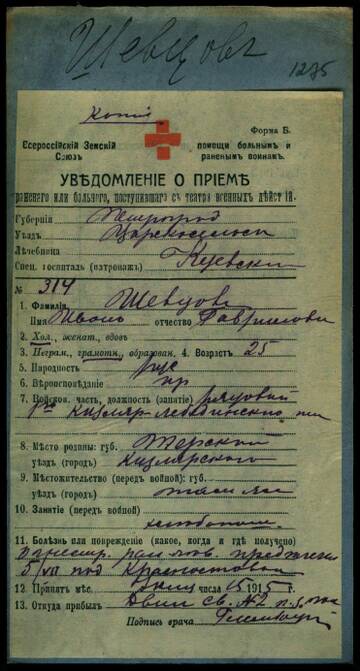 Шевцовъ
1235
Копія
Форма Б.
Всероссійскій Земскій Союзъ
помощи больнымъ и раненымъ воинамъ.
УВѢДОМЛЕНІЕ О ПРІЕМѢ
раненаго или больного, поступившаго съ театра военныхъ дѣйствій.
Губернія Петроград
Уѣздъ Царскосельск
Лѣчебница
Спец. госпиталь (патронажъ)
№ 314
1. Фамилія Шевцовъ
Имя Иванъ отчество Гавриловъ
2. Хол., женат., вдовъ
3. Неграм., грамотн., образован. 4. Возрастъ 25
5. Народность рус
6. Вѣроисповѣданіе пр
7. Войсков. часть, должность (занятіе) рядовой
8. Мѣсто родины: губ. Терской
уѣздъ (городъ) Кизлярскаго
9. Мѣстожительство (передъ войной): губ.
уѣздъ (городъ)
10. Занятіе (передъ войной)
11. Болѣзнь или поврежденіе (какое, когда и гдѣ получено)
5/VII под Красноставом
12. Принятъ мѣс. числа 15 1915 г.
13. Откуда прибылъ
Подпись врача